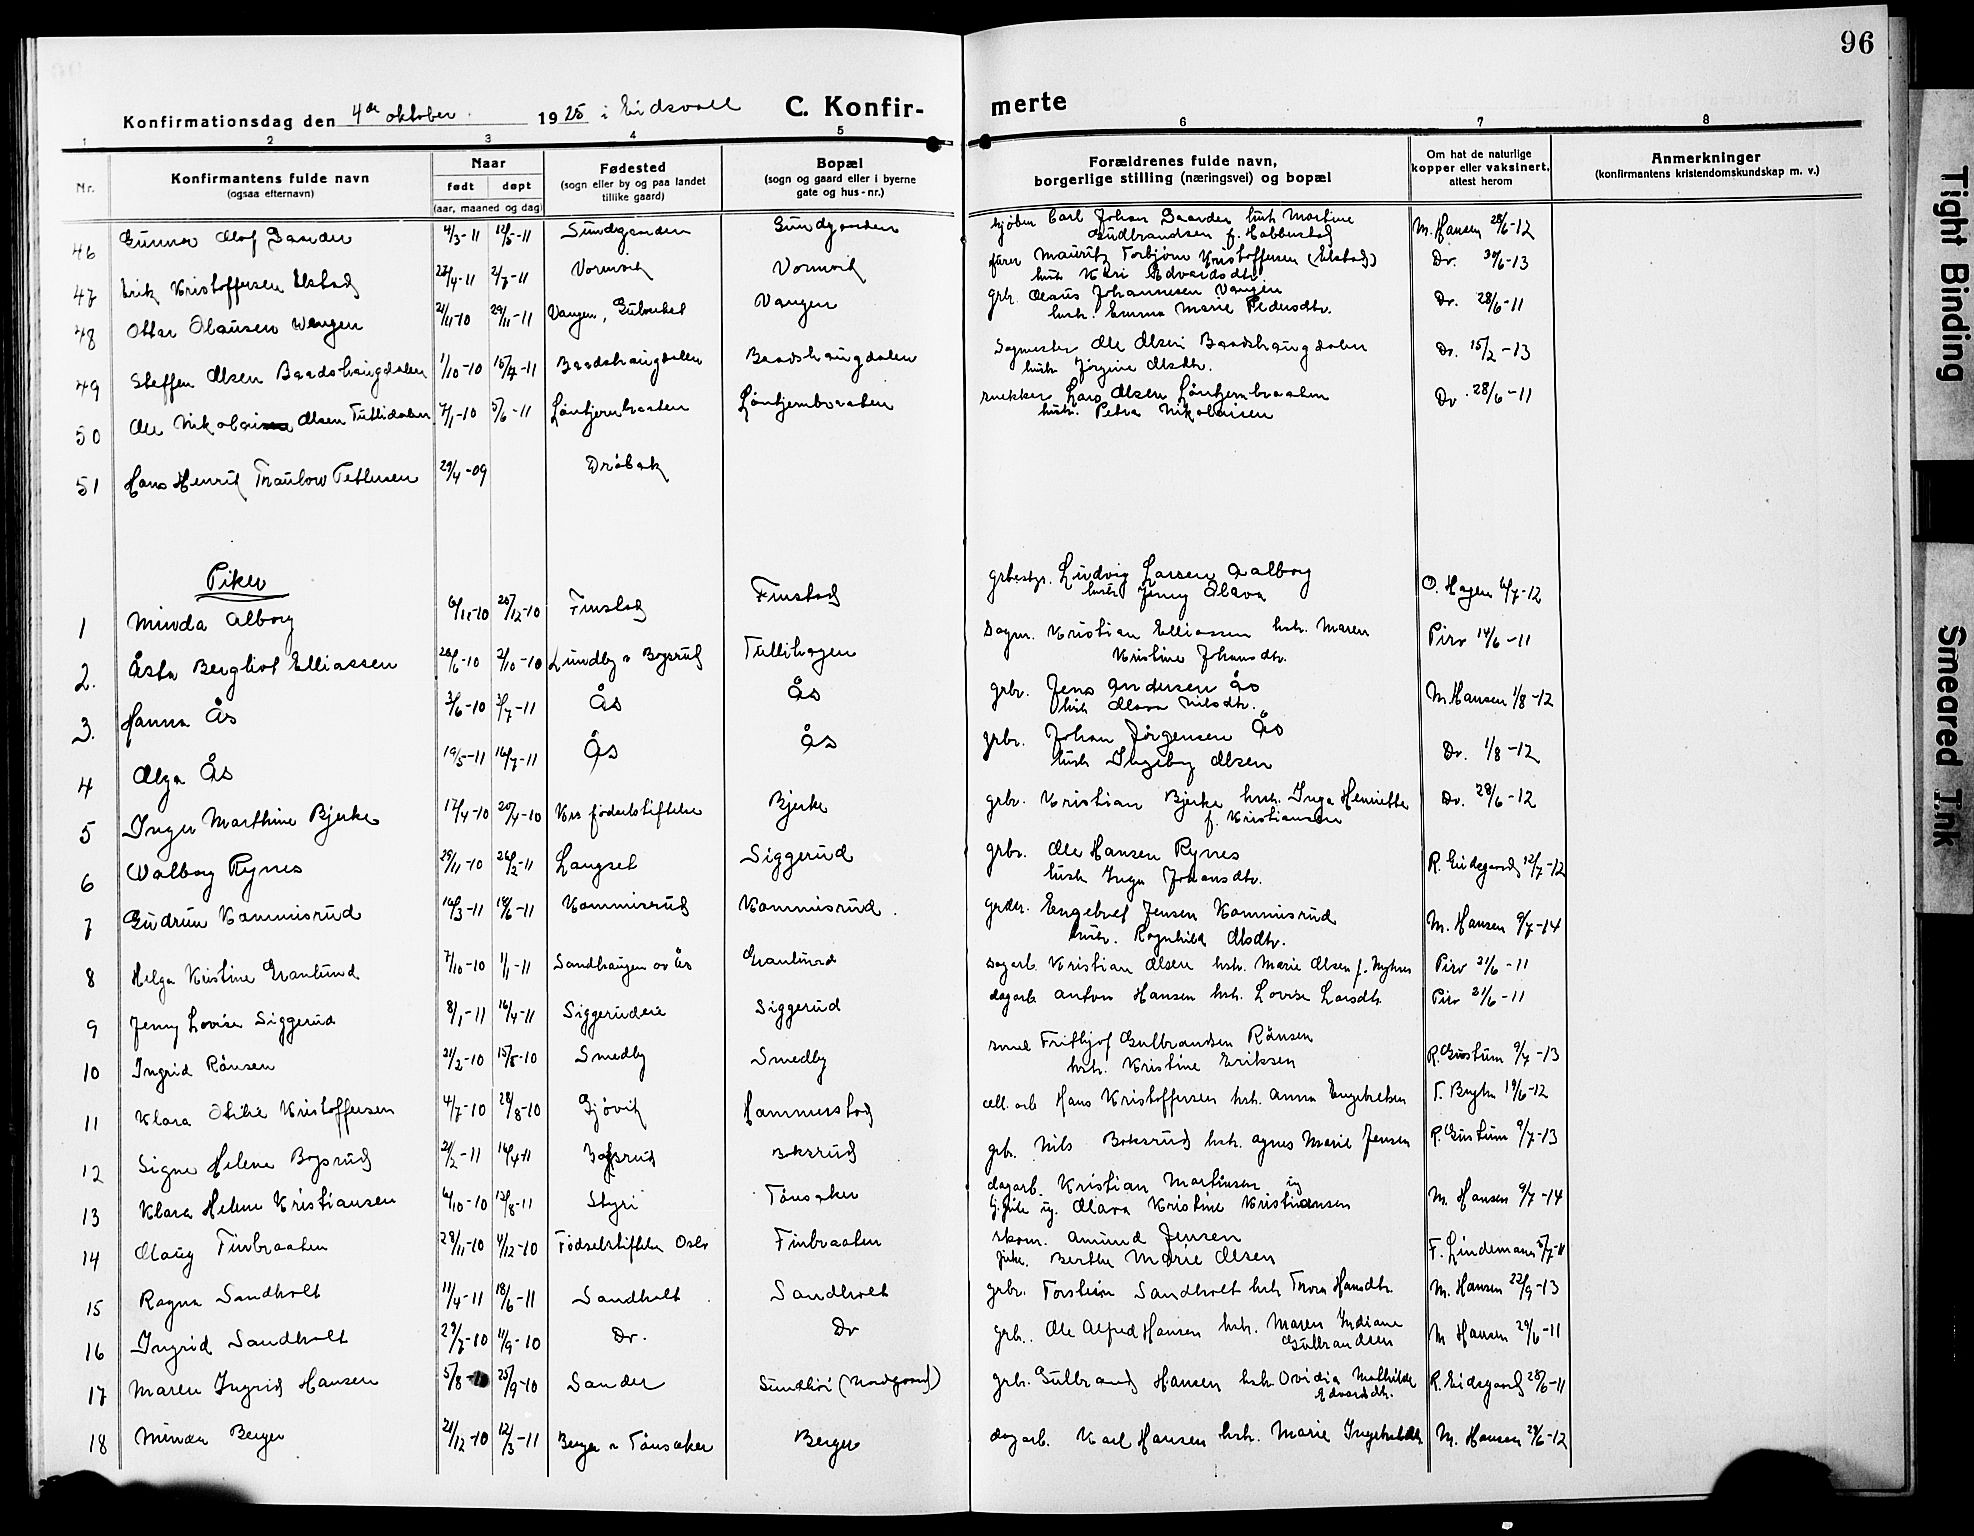 96
Konfirmationsdag den 4de oktober 1925 i Eidsvoll C. Konfir- merte
1 2 3 4 5 6 7 8
Nr. Konfirmantens fulde navn (ogsaa efternavn) Naar født døpt (aar, maaned og dag) Fødested (sogn eller by og paa landet tillike gaard) Bopæl (sogn og gaard eller i byerne gate og hus-nr.) Forældrenes fulde navn, borgerlige stilling (næringsvei) og bopæl Om hat de naturlige kopper eller vaksinert, attest herom Anmerkninger (konfirmantens kristendomskundskap m. v.)
46 Gunnar Olof 4/3-11 12/5-11 Sundgaarden Sundgaarden Carl Johan hustr. Martine Gudbrandsen f. Habberstad M. Hansen 28/6-12
47 Erik Kristoffersen Elstad 22/4-11 2/7-11 Vormvik Vormvik Mauritz Torbjørn Kristoffersen (Elstad) hustr. Kari Edvardsdtr. Do. 30/6-13
48 Ottar Olausen Wangen 21/11-10 29/11-11 Vangen, Vangen grb. Olaus Johannesen Vangen hustr. Emma Marie Pedersdtr. Do. 28/6-11
49 Steffen Olsen Baadshaugdalen 1/10-10 Baadshaugdalen Baadshaugdalen Sagmester Ole Olsen Baadshaugdalen hustr. Jørgine Olsdtr. Do. 15/2-13
50 Ole Nikolai Olsen Tuttidalen 7/1-10 5/6-11 Løntjernbraaten Løntjernbraaten snekker Lars Olsen Løntjernbraaten hustr. Petra Nikolaisen Do. 28/6-11
51 Hans Henrik Traulow Pettersen 29/4-09 Drøbak
Piker
1 Minda Alborg 6/11-10 26/12-10 Finstad Finstad grbestyr. Ludvig Larsen Aalborg hustr. Jenny Olava O. Hagen 6/7-12
2. Åsta Bergliot Elliassen 26/6-10 2/10-10 Lundby v Bøgsrud Tuttihagen Dagm. Kristian Elliassen hstr. Maren Kristine Johansdtr. Piro 14/6-11
3. Hanna Ås 3/6-10 3/7-11 Ås Ås grbr. Jens Andersen Ås hstr. Olava Nilsdtr. M. Hansen 1/8-12
4 Olga Ås 19/5-11 16/7-11 Ås Ås grbr. Johan Jørgensen Ås hustr. Ingeborg Olsen Do. 1/8-12
5 Inger Marthine Bjerke 17/4-10 20/4-10 Krs fødselsstiftelse Bjerke grbr. Kristian Bjerke hustr. Inga Henriette f. Kristiansen Do. 28/6-12
6 Valborg Rynes 29/11-10 26/2-11 Langset Siggerud grbr. Ole Hansen Rynes hustr. Inga Johansdtr. R. Eidsgaard 12/7-12
7 Gudrun Kammisrud 16/3-11 18/6-11 Kammisrud Kammisrud. grbr. Engebret Jensen Kammisrud hustr. Ragnhild Olsdtr. M. Hansen 9/7-14
8 Helga Kristine Granlund 7/10-10 1/1-11 Sandhaugen av Ås Granlund dagarb. Kristian Olsen hstr. Marie Olsen f. Piro 21/6-11
9 Jenny Lovise Siggerud 8/1-11 16/4-11 Siggerudeie Siggerud dagarb. Anton Hansen hstr. Lovise Larsdtr. Piro 21/6-11
10 Ingrid Rånsen 21/2-10 15/5-10 Smedby Smedby smed Fritjof Gulbrandsen Rånsen hstr. Kristine Eriksen R. Gustum 9/7-13
11 Klara Otilie Kristoffersen 4/7-10 28/8-10 Gjøvik Hammerstad cell. arb Hans Kristoffersen hstr. Anna Engebretsen T. 19/6-12
12 Signe Helene Bogsrud 21/2-11 16/4-11 Bogsrud Boksrud grb. Nils Boksrud hstr. Agnes Marie Jensen R. Gustum 9/7-13
13 Klara Helene Kristiansen 6/10-10 13/8-11 Styri Tønsaker dagarb. Kristian Martinsen og ug. Olava Kristine Kristiansen M. Hansen 9/7-14
14 Olaug Finbraaten 28/11-10 4/12-10 Fødselsstiftelse Oslo Finbraaten skom. Amund Jensen Berthe Marie Olsen F. Lindemann 5/7-11
15 Ragna Sandholt 11/4-11 18/6-11 Sandholt Sandholt grbr. Torstein Sandholt hstr. Thora Hansdtr. M. Hansen 22/9-13
16 Ingrid Sandholt 29/7-10 11/9-10 Do. Do grb. Ole Alfred Hansen hstr. Maren Indiane Gulbrandsen M Hansen 29/6-11
17 Maren Ingrid Hansen 5/8- 25/9-10 Sander Sundhøi (Nordgaard) grb. Gulbrand Hansen hstr. Ovidia Mathilde Edvardsdtr. R. Eidsgaard 28/6-11
18 Minda Berger 21/12-10 12/3-11 Berger v Tønsaker Berger dagarb. Karl Hansen hstr. Marie M. Hansen 29/6-12
Tight Binding
Smeared Ink